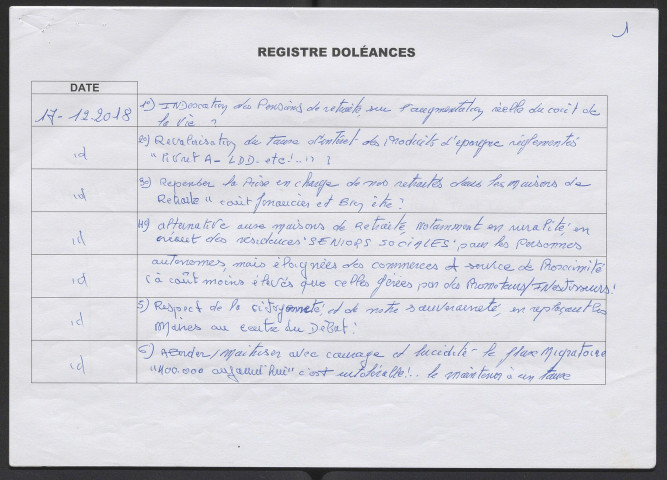 1
REGISTRE DOLÉANCES
DATE
17-12.2018
1°) INDexation des Pensions de retraite, sur l'augmentation réelle du coût de
la vie ?
id
2°) Revalorisation du taux d'intérêt des Produits d'épargne réglementés
"Livret A - LDD. etc!..." ?
id
3°) Repenser la Prise en charge de nos retraités dans les maisons de
Retraite" coût financier et Bien être ?
id
4°) alternative aux maisons de Retraite, Notamment en ruralité, en
créant des résidences "SENIORS SOCIALES", pour les Personnes
id
autonomes, mais éloignées des commerces & service de Proximité
(à coût moins élevés que celles gérées par des Promoteurs/INvestisseurs!
id
5) Respect de la citoyenneté, et de notre souveraineté, en replaçant les
Maires au centre du Débat!
id
6) ABorder/Maîtriser avec courage et lucidité - le flux Migratoire
"400.000 aujourd'hui" c'est intolérable!.. le maintenir à un taux